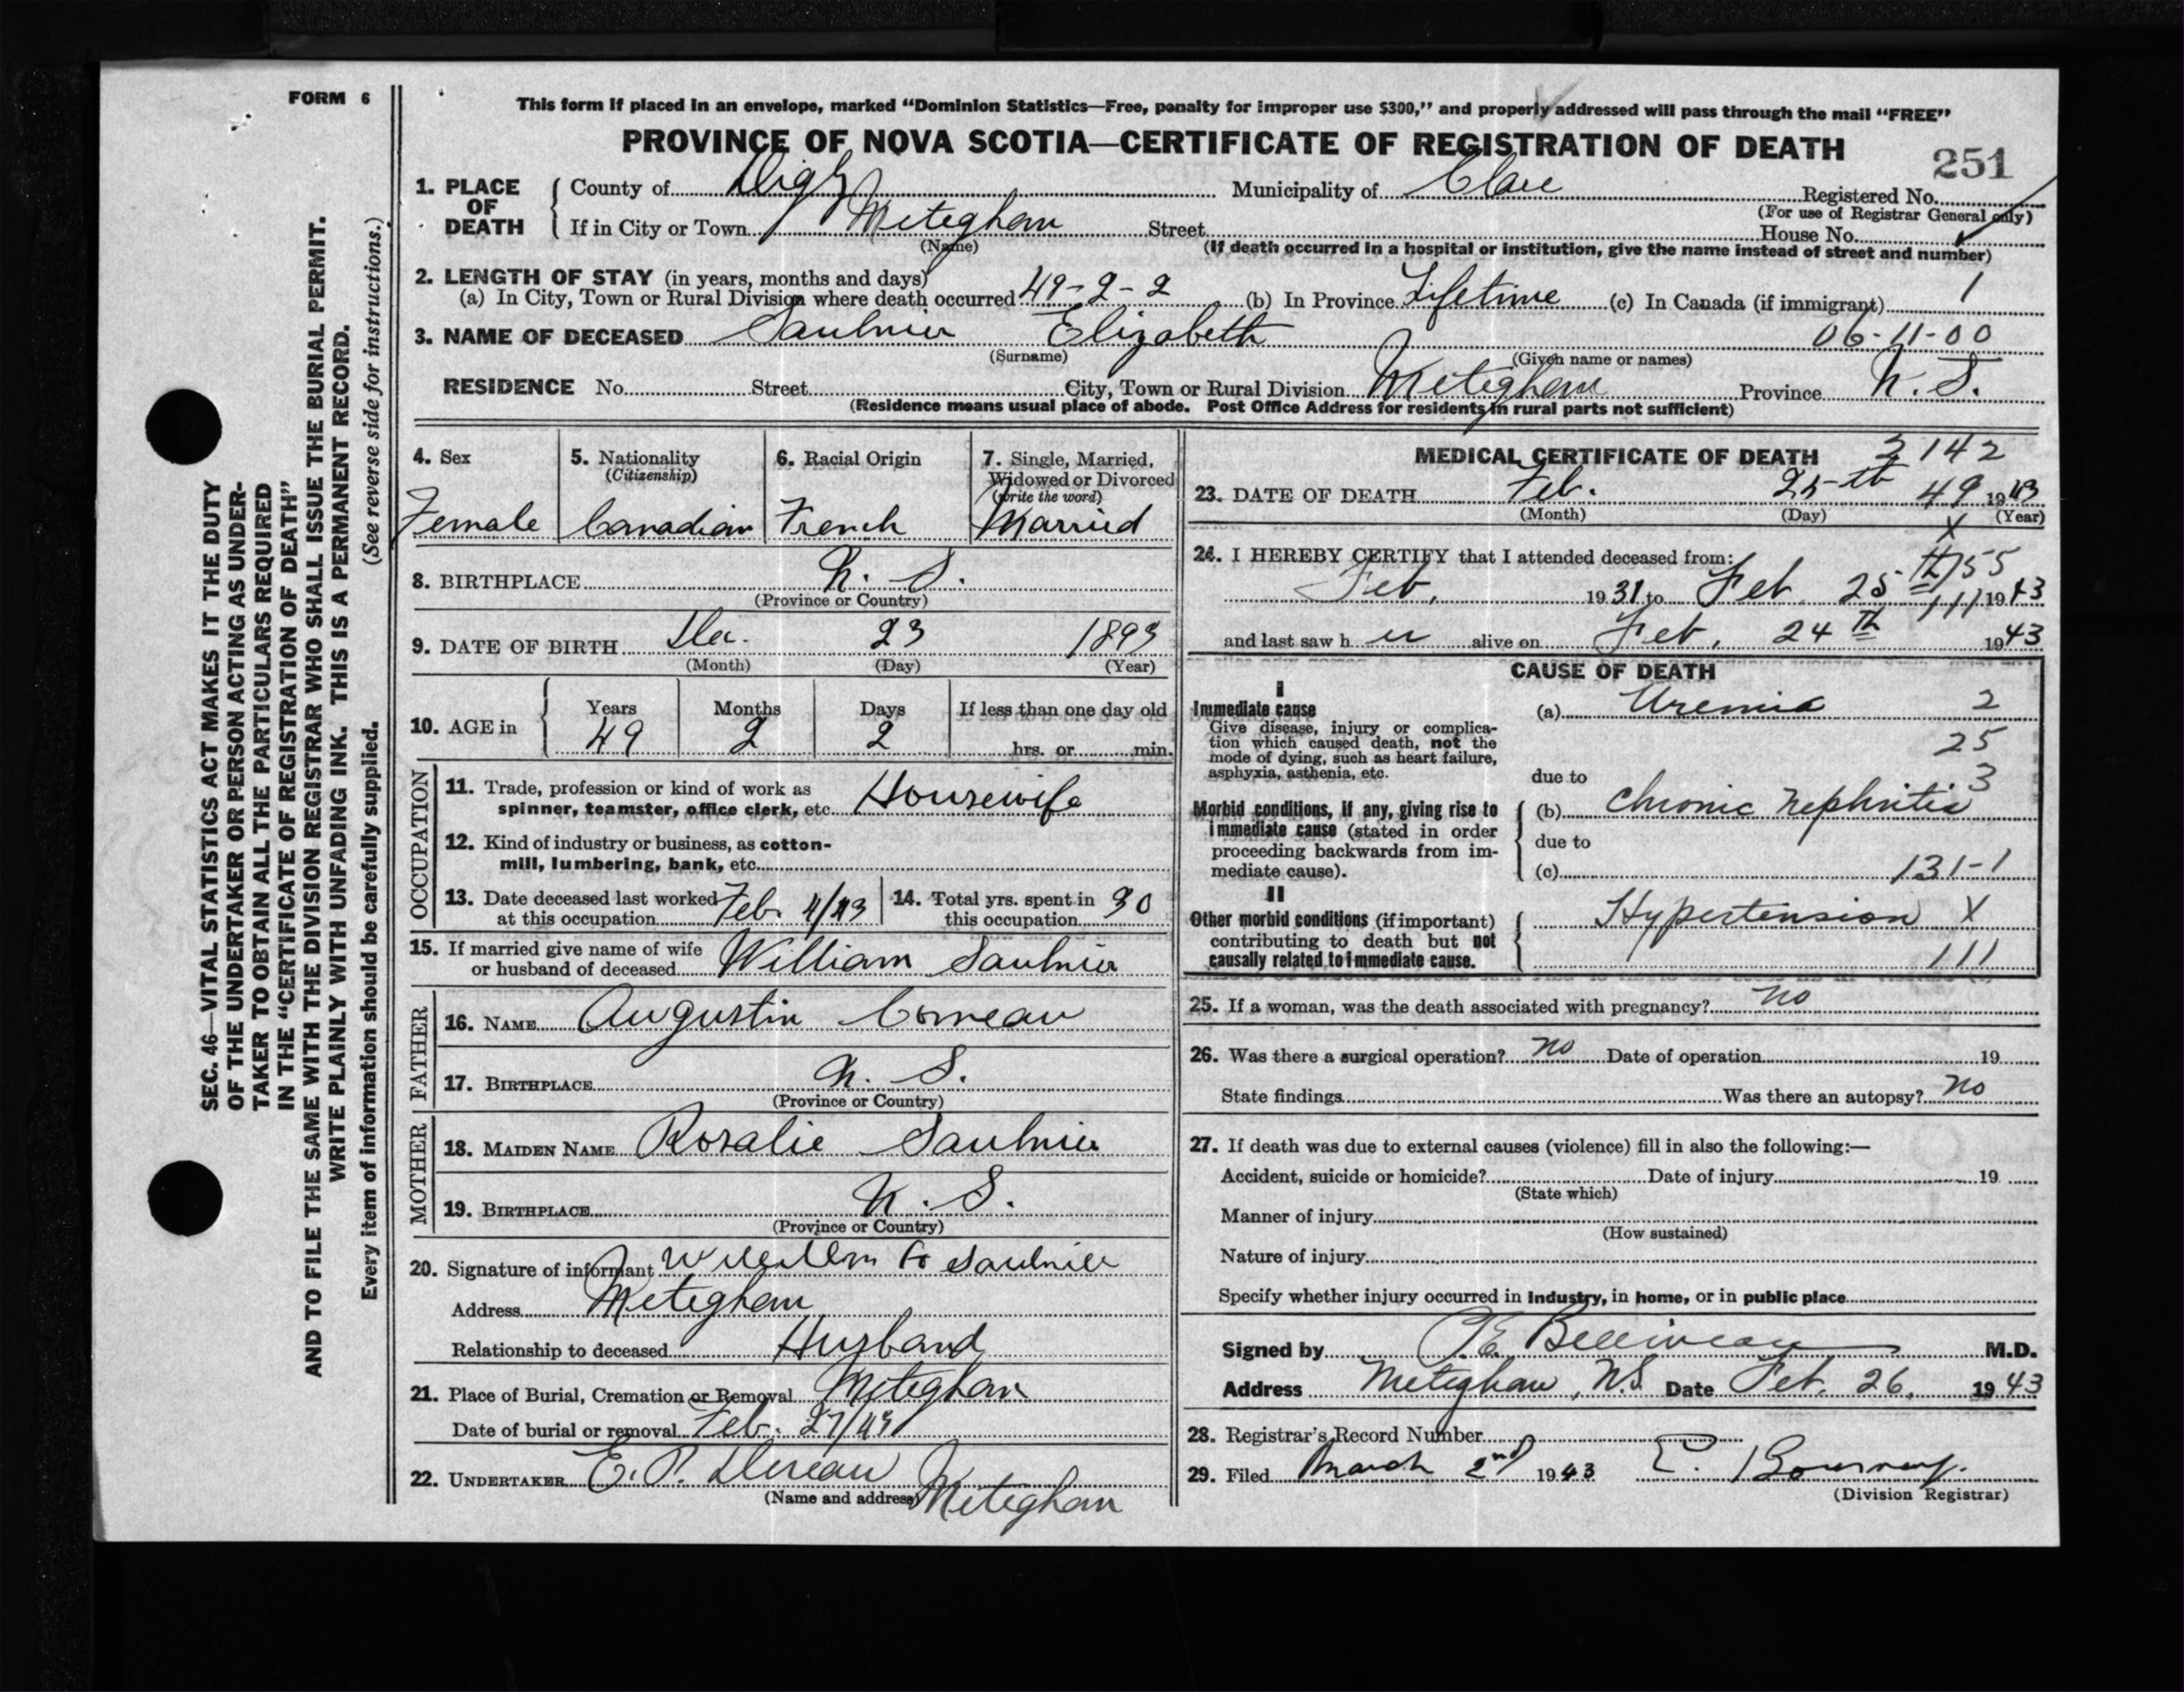 FORM 6
This form if placed in an envelope, marked "Dominion Statistics—Free, penalty for improper use $300," and properly addressed will pass through the mail "FREE"
PROVINCE OF NOVA SCOTIA—CERTIFICATE OF REGISTRATION OF DEATH
251
1. PLACE OF DEATH County of Digby Municipality of Clare Registered No.
(For use of Registrar General only)
If in City or Town Meteghan Street House No.
(Name) (If death occurred in a hospital or institution, give the name instead of street and number)
2. LENGTH OF STAY (in years, months and days)
(a) In City, Town or Rural Division where death occurred 49-2-2 (b) In Province Lifetime (c) In Canada (if immigrant) 1
06-11-00
3. NAME OF DECEASED Saulnier Elizabeth
(Surname) (Given name or names)
RESIDENCE No. Street City, Town or Rural Division Meteghan Province N. S.
(Residence means usual place of abode. Post Office Address for residents in rural parts not sufficient)
4. Sex
Female
5. Nationality
(Citizenship)
Canadian
6. Racial Origin
French
7. Single, Married,
Widowed or Divorced
(write the word)
Married
8. BIRTHPLACE N. S.
(Province or Country)
9. DATE OF BIRTH Dec. 23 1893
(Month) (Day) (Year)
10. AGE in Years Months Days If less than one day old
49 2 2 hrs. or min.
OCCUPATION
11. Trade, profession or kind of work as
spinner, teamster, office clerk, etc. Housewife
12. Kind of industry or business, as cotton-
mill, lumbering, bank, etc.
13. Date deceased last worked
at this occupation Feb. 4/43
14. Total yrs. spent in
this occupation 30
15. If married give name of wife
or husband of deceased William Saulnier
FATHER
16. NAME Augustin Comeau
17. BIRTHPLACE N. S.
(Province or Country)
MOTHER
18. MAIDEN NAME Rosalie Saulnier
19. BIRTHPLACE N. S.
(Province or Country)
20. Signature of informant Saulnier
Address Meteghan
Relationship to deceased Husband
21. Place of Burial, Cremation or Removal Meteghan
Date of burial or removal Feb. 27/43
22. UNDERTAKER E. P. Meteghan
(Name and address)
MEDICAL CERTIFICATE OF DEATH 3142
23. DATE OF DEATH Feb. 25th 49 1943
(Month) (Day) X (Year)
24. I HEREBY CERTIFY that I attended deceased from:
Feb. 1931 to Feb. 25th 1943
155
111
and last saw her alive on Feb. 24th 1943
CAUSE OF DEATH
I
Immediate cause
Give disease, injury or complica-
tion which caused death, not the
mode of dying, such as heart failure,
asphyxia, asthenia, etc.
(a) Uremia 2
25
3
due to
Morbid conditions, if any, giving rise to
immediate cause (stated in order
proceeding backwards from im-
mediate cause).
(b) Chronic Nephritis
due to
(c) 131-1
II
Other morbid conditions (if important)
contributing to death but not
causally related to immediate cause.
Hypertension X
111
25. If a woman, was the death associated with pregnancy? no
26. Was there a surgical operation? no Date of operation 19
State findings Was there an autopsy? no
27. If death was due to external causes (violence) fill in also the following:—
Accident, suicide or homicide? Date of injury 19
(State which)
Manner of injury
(How sustained)
Nature of injury
Specify whether injury occurred in industry, in home, or in public place
Signed by P. E. Belliveau M.D.
Address Meteghan, N.S. Date Feb. 26, 1943
28. Registrar's Record Number
29. Filed March 2nd 1943
(Division Registrar)
SEC. 46—VITAL STATISTICS ACT MAKES IT THE DUTY
OF THE UNDERTAKER OR PERSON ACTING AS UNDER-
TAKER TO OBTAIN ALL THE PARTICULARS REQUIRED
IN THE "CERTIFICATE OF REGISTRATION OF DEATH"
AND TO FILE THE SAME WITH THE DIVISION REGISTRAR WHO SHALL ISSUE THE BURIAL PERMIT.
WRITE PLAINLY WITH UNFADING INK. THIS IS A PERMANENT RECORD.
Every item of information should be carefully supplied. (See reverse side for instructions.)